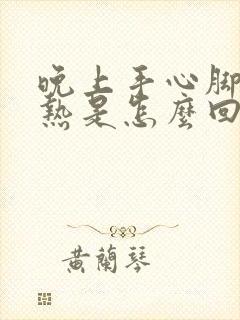 晚上手心脚
热是怎麼回
黄蘭琴